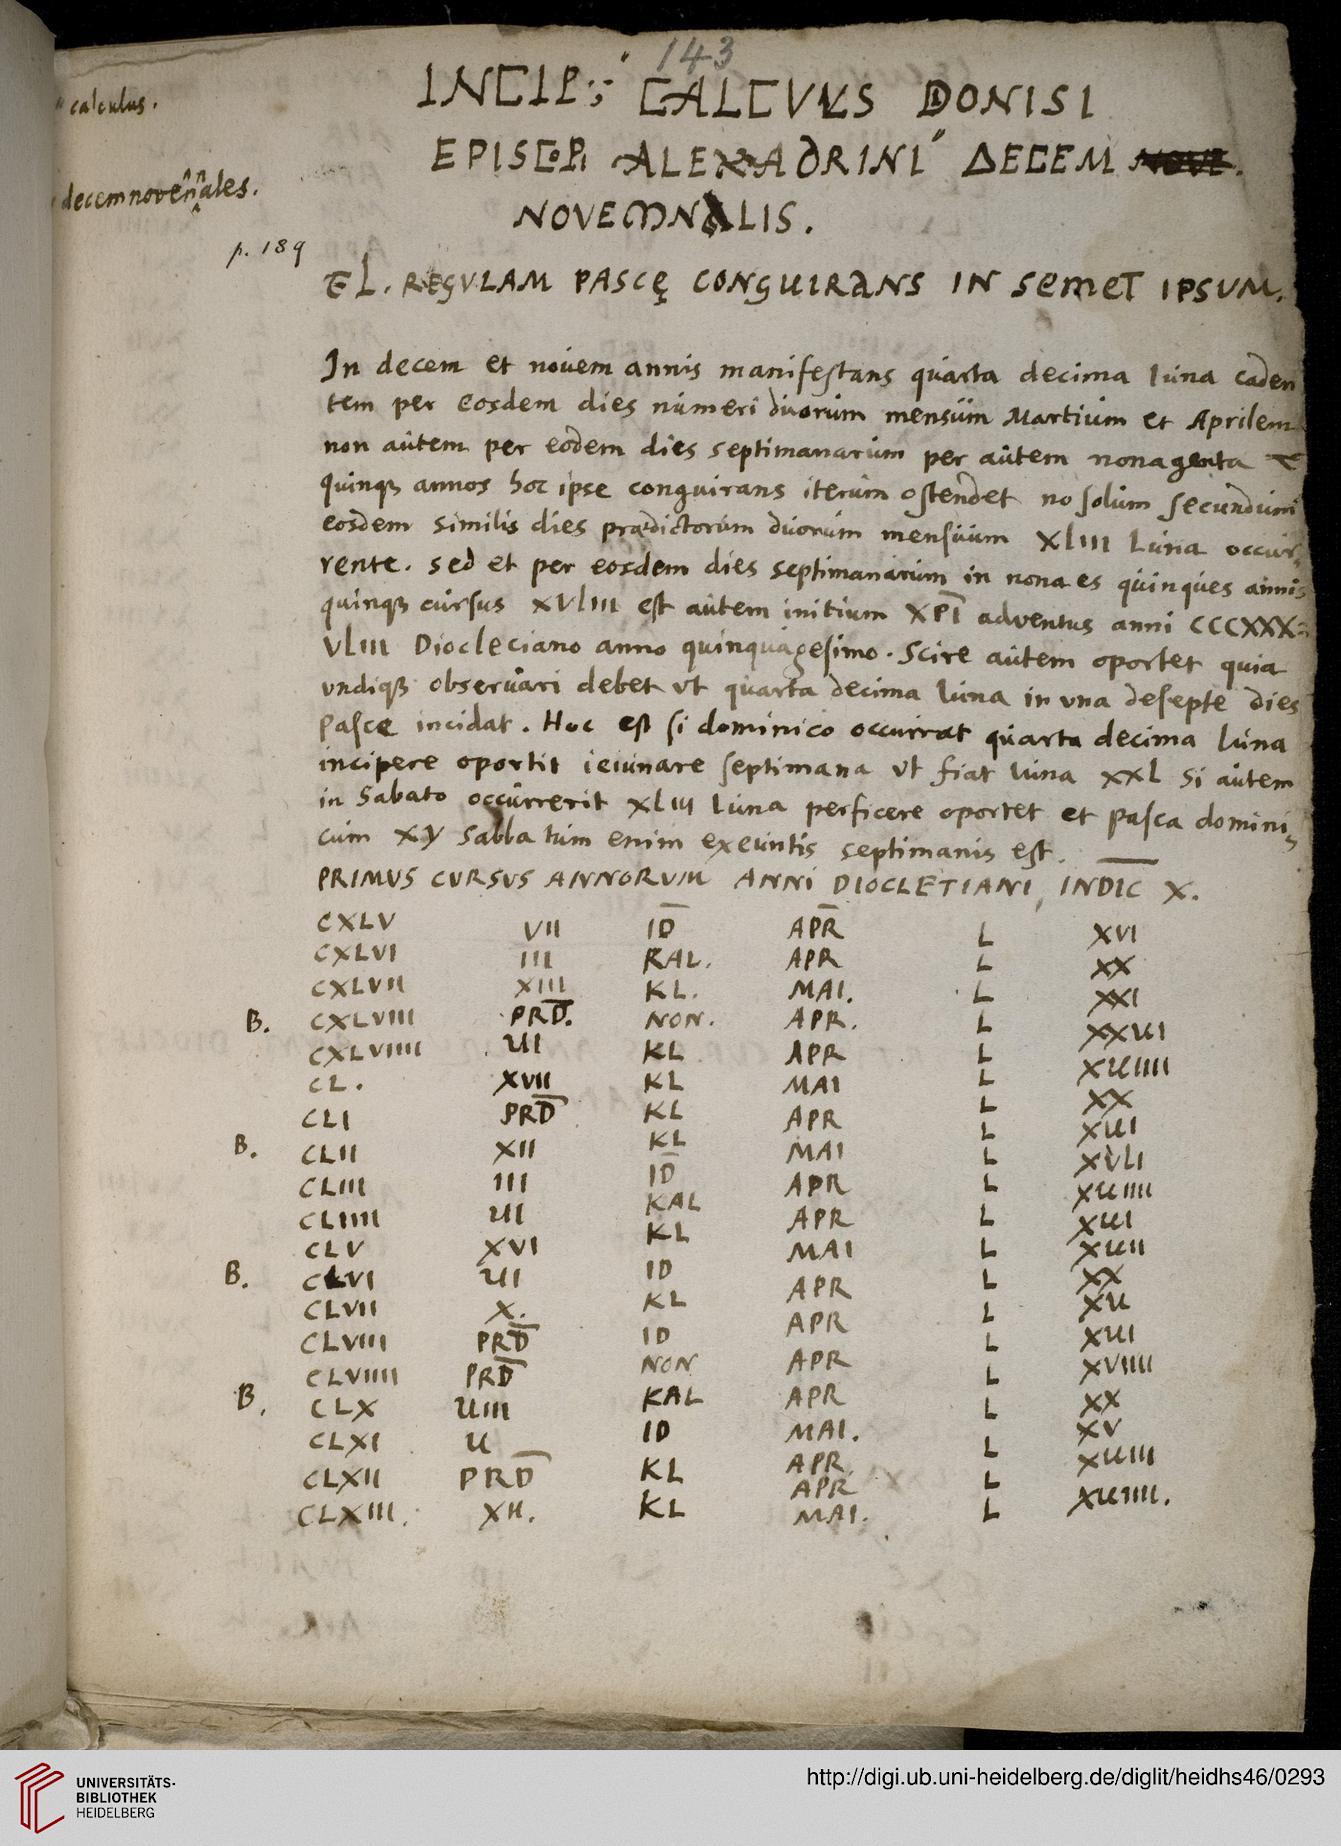 143
INCIP: CALCVLVS DONISI
calculus.
EPISCOPI ALEXADRINI DECEM NOVE.
decemnovennales.
NOVEMNALIS.
p. 189
ET L. REGVLAM PASCę CONGUIRANS IN SEMET IPSUM.
In decem et novem annis manifestans quarta decima luna caden
tem per eosdem dies numeri duorum mensium Martium et Aprilem
non autem per eodem dies septimanarum per autem nonagenta
quinq annos hoc ipse conguirans iterum ostendet no solum secundum
eosdem similis dies prædictorum duorum mensuum XlIII Luna occur
rente. sed et per eosdem dies septimanarum in nona es quinques annis
quinq cursus XVlIII est autem initium XPI adventus anni CCCXXX
VlIII Diocleciano anno quinquagesimo. Scire autem oportet quia
undiq observari debet ut quarta decima luna in una desepte dies
Pasce incidat. Hoc est si dominico occurrat quarta decima luna
incipere oportit ieiunare septimana ut fiat luna xxl si autem
in Sabato occurrerit xlIII luna perficere oportet et pasca domini
cum xy sabbatum enim exeuntis septimanis est.
PRIMUS CURSUS ANNORUM ANNI DIOCLETIANI, INDIC X.
CXLV VII ID APR L XVI
CXLVI III KAL. APR L XX
CXLVII XIII KL. MAI. L XXI
B. CXLVIII PRD. NON. APR. L XXUI
CXLVIIII UII KL APR L XUIIII
CL. XVII KL MAI L XX
CLI PRD KL APR L XUI
B. CLII XII KL MAI L XVLI
CLIII III ID APR L XUIIII
CLIIII UI KAL APR L XUI
CLV XVI KL MAI L XUII
B. CLVI UII ID APR L XX
CLVII X. KL APR L XU
CLVIII PRD ID APR L XUI
CLVIIII PRD NON APR L XVIIII
B. CLX UIII KAL MAI. L XX
CLXI U ID APR L XV
CLXII PRD KL APR L XUIII
CLXIII. XII. KL MAI. L XUIIII.
UNIVERSITÄTS-
BIBLIOTHEK
HEIDELBERG
http://digi.ub.uni-heidelberg.de/diglit/heidhs46/0293